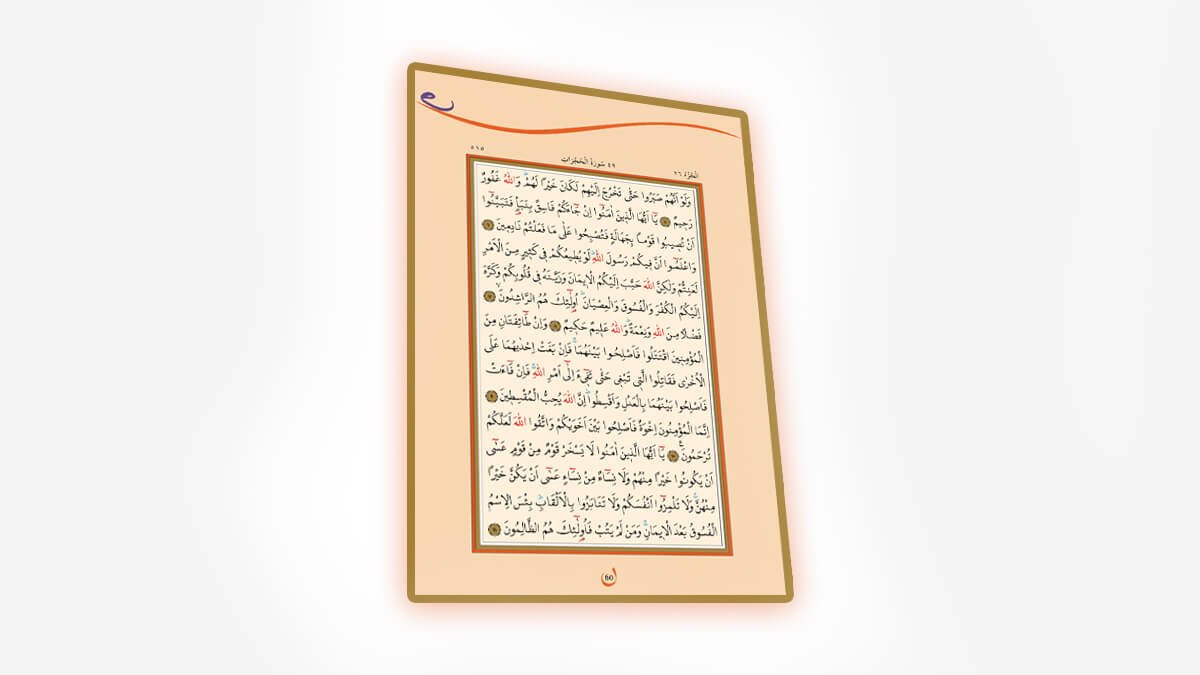 الجزء ٢٦
٤٩ سورة الحجرات
٥١٥
وَلَوْ اَنَّهُمْ صَبَرُوا حَتّٰى تَخْرُجَ اِلَيْهِمْ لَكَانَ خَيْرًا لَهُمْۜ وَاللّٰهُ غَفُورٌ
رَحِيمٌ ﴿٥﴾ يَٓا اَيُّهَا الَّذِينَ اٰمَنُٓوا اِنْ جَٓاءَكُمْ فَاسِقٌ بِنَبَأٍ فَتَبَيَّنُٓوا
اَنْ تُصِيبُوا قَوْمًا بِجَهَالَةٍ فَتُصْبِحُوا عَلٰى مَا فَعَلْتُمْ نَادِمِينَ ﴿٦﴾
وَاعْلَمُٓوا اَنَّ فِيكُمْ رَسُولَ اللّٰهِۜ لَوْ يُطِيعُكُمْ فِي كَثِيرٍ مِنَ الْاَمْرِ
لَعَنِتُّمْ وَلٰكِنَّ اللّٰهَ حَبَّبَ اِلَيْكُمُ الْاِيمَانَ وَزَيَّنَهُ فِي قُلُوبِكُمْ وَكَرَّهَ
اِلَيْكُمُ الْكُفْرَ وَالْفُسُوقَ وَالْعِصْيَانَۜ اُو۬لٰٓئِكَ هُمُ الرَّاشِدُونَۙ ﴿٧﴾
فَضْلًا مِنَ اللّٰهِ وَنِعْمَةًۜ وَاللّٰهُ عَلِيمٌ حَكِيمٌ ﴿٨﴾ وَاِنْ طَٓائِفَتَانِ مِنَ
الْمُؤْمِنِينَ اقْتَتَلُوا فَاَصْلِحُوا بَيْنَهُمَاۚ فَاِنْ بَغَتْ اِحْدٰيهُمَا عَلَى
الْاُخْرٰى فَقَاتِلُوا الَّتِي تَبْغِي حَتّٰى تَفِٓيءَ اِلٰٓى اَمْرِ اللّٰهِۚ فَاِنْ فَٓاءَتْ
فَاَصْلِحُوا بَيْنَهُمَا بِالْعَدْلِ وَاَقْسِطُواۜ اِنَّ اللّٰهَ يُحِبُّ الْمُقْسِطِينَ ﴿٩﴾
اِنَّمَا الْمُؤْمِنُونَ اِخْوَةٌ فَاَصْلِحُوا بَيْنَ اَخَوَيْكُمْ وَاتَّقُوا اللّٰهَ لَعَلَّكُمْ
تُرْحَمُونَ۟ ﴿١٠﴾ يَٓا اَيُّهَا الَّذِينَ اٰمَنُوا لَا يَسْخَرْ قَوْمٌ مِنْ قَوْمٍ عَسٰٓى
اَنْ يَكُونُوا خَيْرًا مِنْهُمْ وَلَا نِسَٓاءٌ مِنْ نِسَٓاءٍ عَسٰٓى اَنْ يَكُنَّ خَيْرًا
مِنْهُنَّۚ وَلَا تَلْمِزُٓوا اَنْفُسَكُمْ وَلَا تَنَابَزُوا بِالْاَلْقَابِۜ بِئْسَ الِاسْمُ
الْفُسُوقُ بَعْدَ الْاِيمَانِۚ وَمَنْ لَمْ يَتُبْ فَاُو۬لٰٓئِكَ هُمُ الظَّالِمُونَ ﴿١١﴾
60